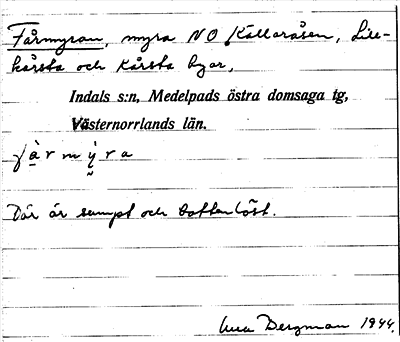 Fårmyran, myra NO Källaråsen, Lill-
kårsta och Kårsta byar,
Indals s:n, Medelpads östra domsaga tg,
Västernorrlands län.
fàrmỳra
Där är sumpt och bottenlöst.
Bergman 1944.